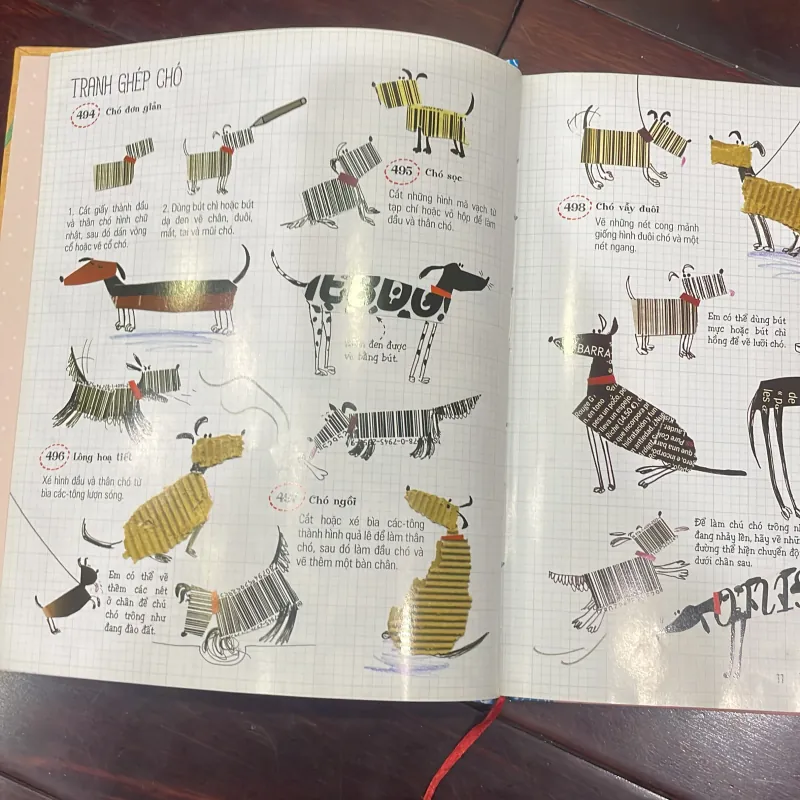 TRANH GHÉP CHÓ
494 Chó đơn giản
1. Cắt giấy thành đầu
và thân chó hình chữ
nhật, sau đó dán vòng
cổ hoặc vẽ cổ chó.
2. Dùng bút chì hoặc bút
dạ đen vẽ chân, đuôi,
mắt, tai và mũi chó.
495 Chó sọc
Cắt những hình mã vạch từ
tạp chí hoặc vỏ hộp để làm
đầu và thân chó.
đen được
vẽ bằng bút.
496 Lông hoạ tiết
Xé hình đầu và thân chó từ
bìa các-tông lượn sóng.
Em có thể vẽ
thêm các nét
ở chân để chú
chó trông như
đang đào đất.
497 Chó ngồi
Cắt hoặc xé bìa các-tông
thành hình quả lê để làm thân
chó, sau đó làm đầu chó và
vẽ thêm một bàn chân.
498 Chó vẫy đuôi
Vẽ những nét cong mảnh
giống hình đuôi chó và một
nét ngang.
Em có thể dùng bút
mực hoặc bút chì
hồng để vẽ lưỡi chó.
BARRA
Để làm chú chó trông
đang nhảy lên, hãy vẽ
đường thể hiện chuyển
dưới chân sau.
11